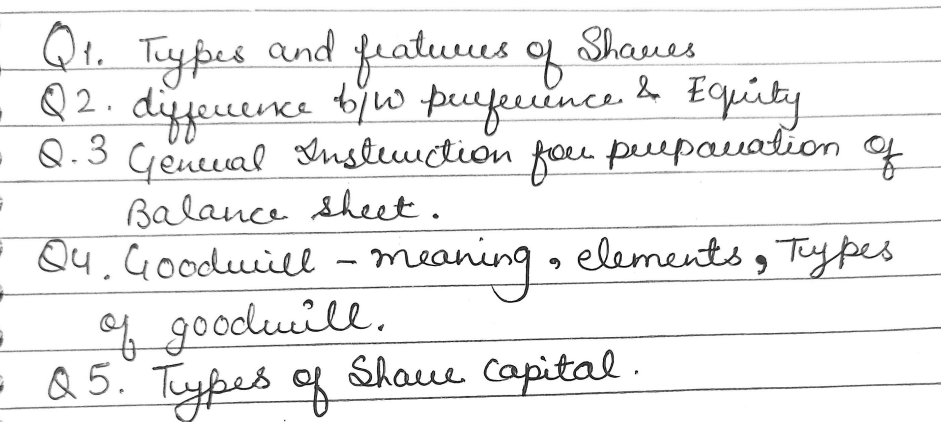 Q1. Types and features of Shares
Q2. difference b/w preference & Equity
Q.3 General Instruction for preparation of
Balance sheet.
Q4. Goodwill - meaning, elements, Types
of goodwill.
Q5. Types of Share capital.